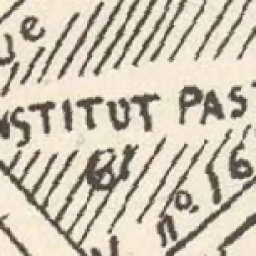 ue
NSTITUT PAS
61
n°.16